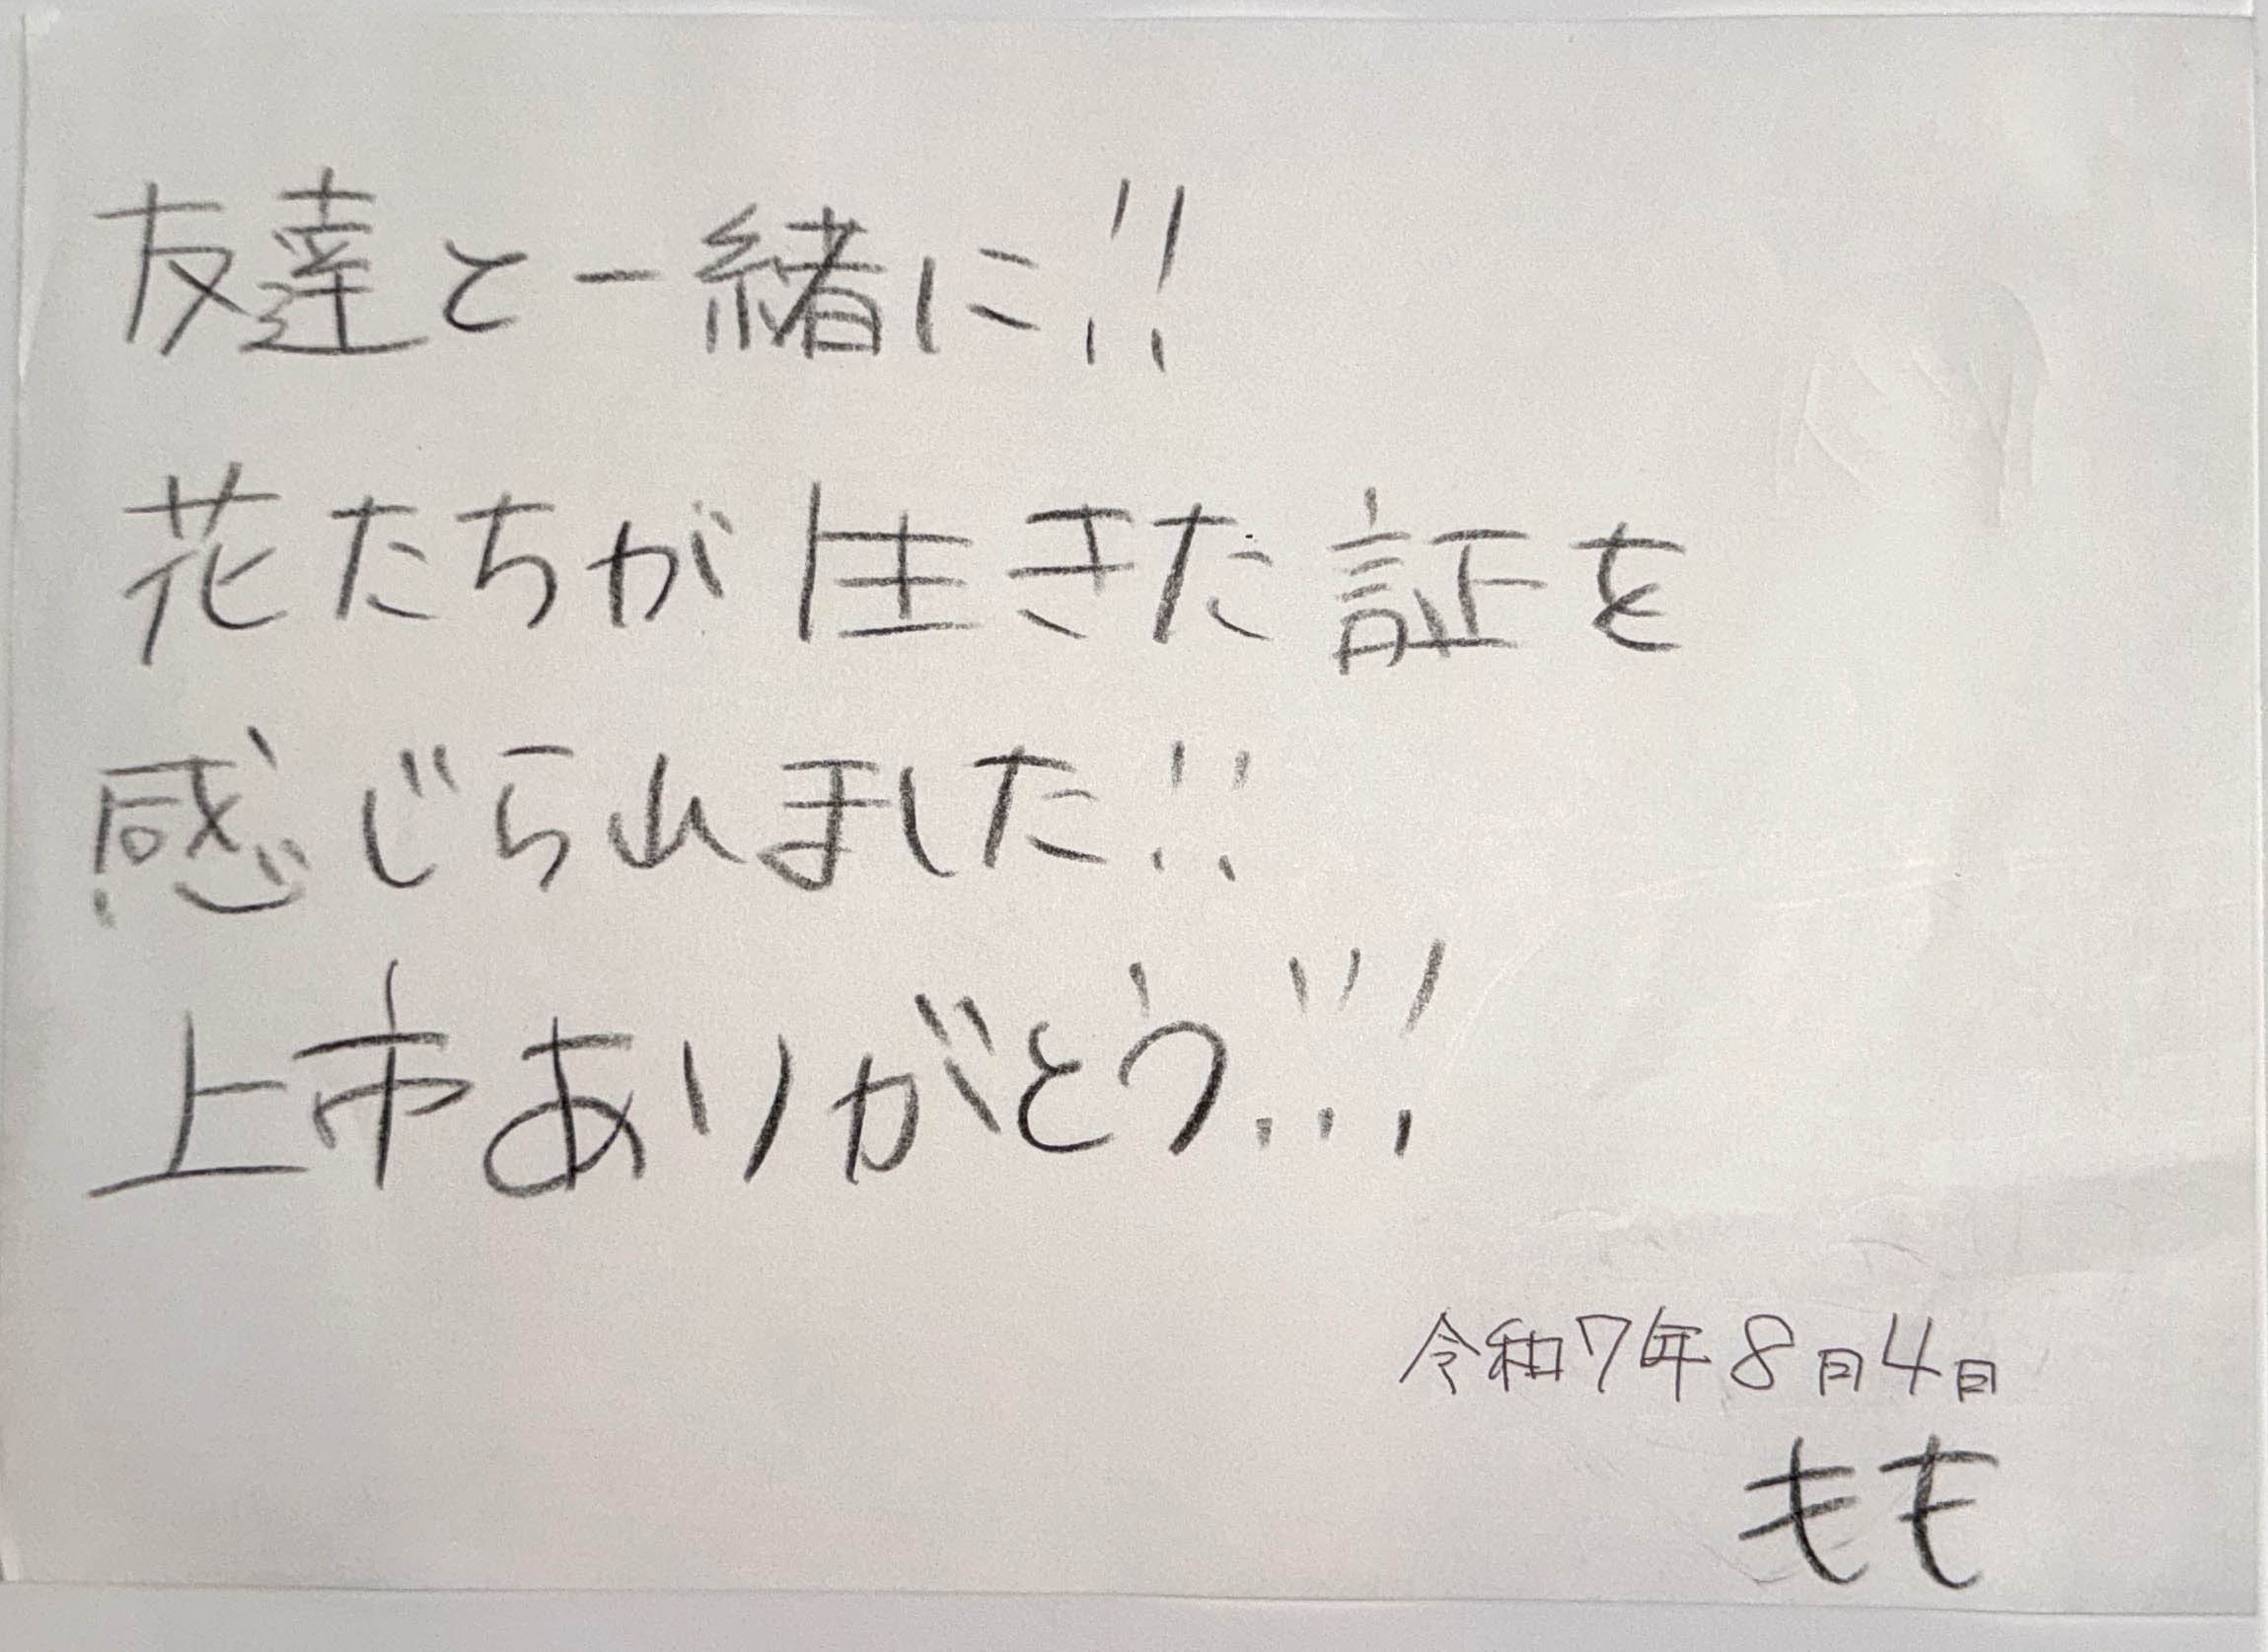 友達と一緒に!!
花たちが生きた証を
感じられました!!
上市ありがとう!!!
令和7年8月4日
もも